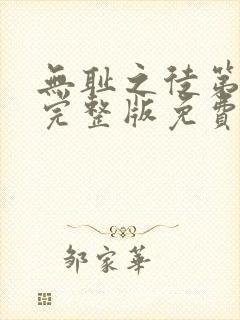 無耻之徒第
完整版免費
邹家華